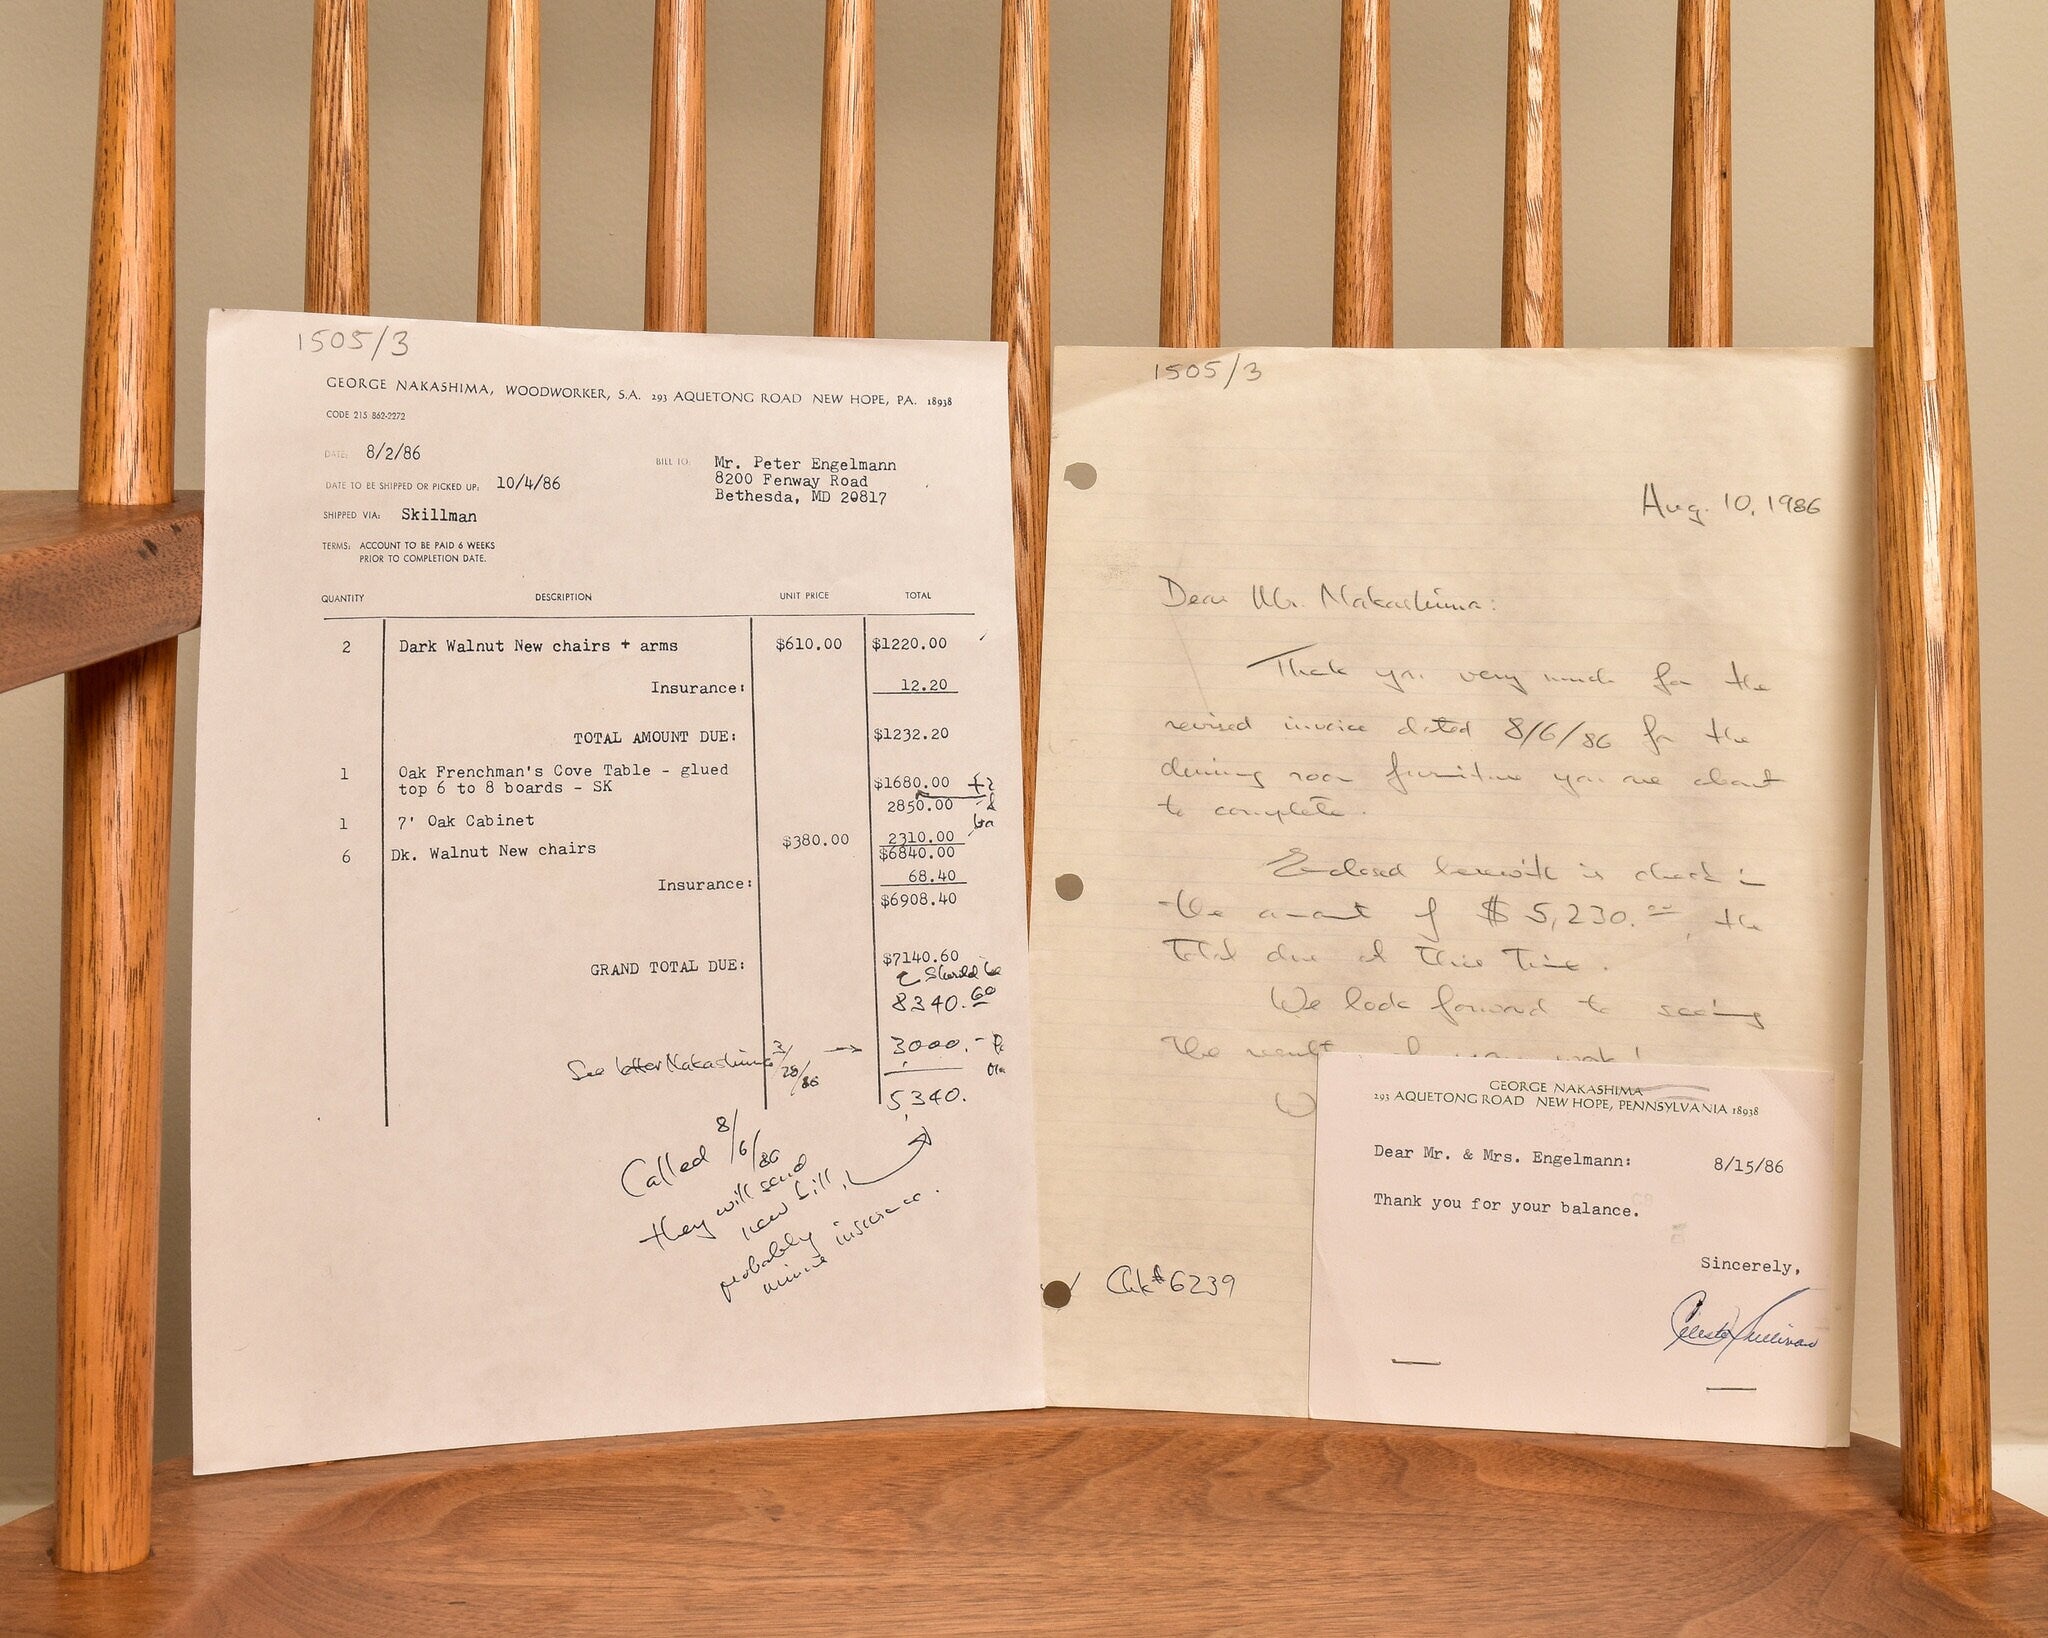 1505/3
GEORGE NAKASHIMA, WOODWORKER, S.A. 293 AQUETONG ROAD NEW HOPE, PA. 18938
CODE 215 862-2272
DATE: 8/2/86
BILL TO: Mr. Peter Engelmann
8200 Fenway Road
Bethesda, MD 20817
DATE TO BE SHIPPED OR PICKED UP: 10/4/86
SHIPPED VIA: Skillman
TERMS: ACCOUNT TO BE PAID 6 WEEKS
PRIOR TO COMPLETION DATE.
QUANTITY DESCRIPTION UNIT PRICE TOTAL
2 Dark Walnut New chairs + arms $610.00 $1220.00
Insurance: 12.20
TOTAL AMOUNT DUE: $1232.20
1 Oak Frenchman's Cove Table - glued
top 6 to 8 boards - SK $1680.00
2850.00
1 7' Oak Cabinet
$380.00 2310.00
6 Dk. Walnut New chairs $6840.00
Insurance: 68.40
$6908.40
GRAND TOTAL DUE: $7140.60
should be
8340.60
See letter Nakashima 3/28/86 → 3000.-
5,340.
Called 8/6/86
they will send
new bill,
probably
minus insurance.
1505/3
Aug. 10, 1986
Dear Mr. Nakashima:
Thank you very much for the
revised invoice dated 8/6/86 for the
dining room furniture you are about
to complete.
Enclosed herewith is check in
the amount of $5,230.00, the
total due at this time.
We look forward to seeing
the results of your work!
Chk# 6239
GEORGE NAKASHIMA
293 AQUETONG ROAD NEW HOPE, PENNSYLVANIA 18938
Dear Mr. & Mrs. Engelmann: 8/15/86
Thank you for your balance.
Sincerely,
Celeste Sullivan